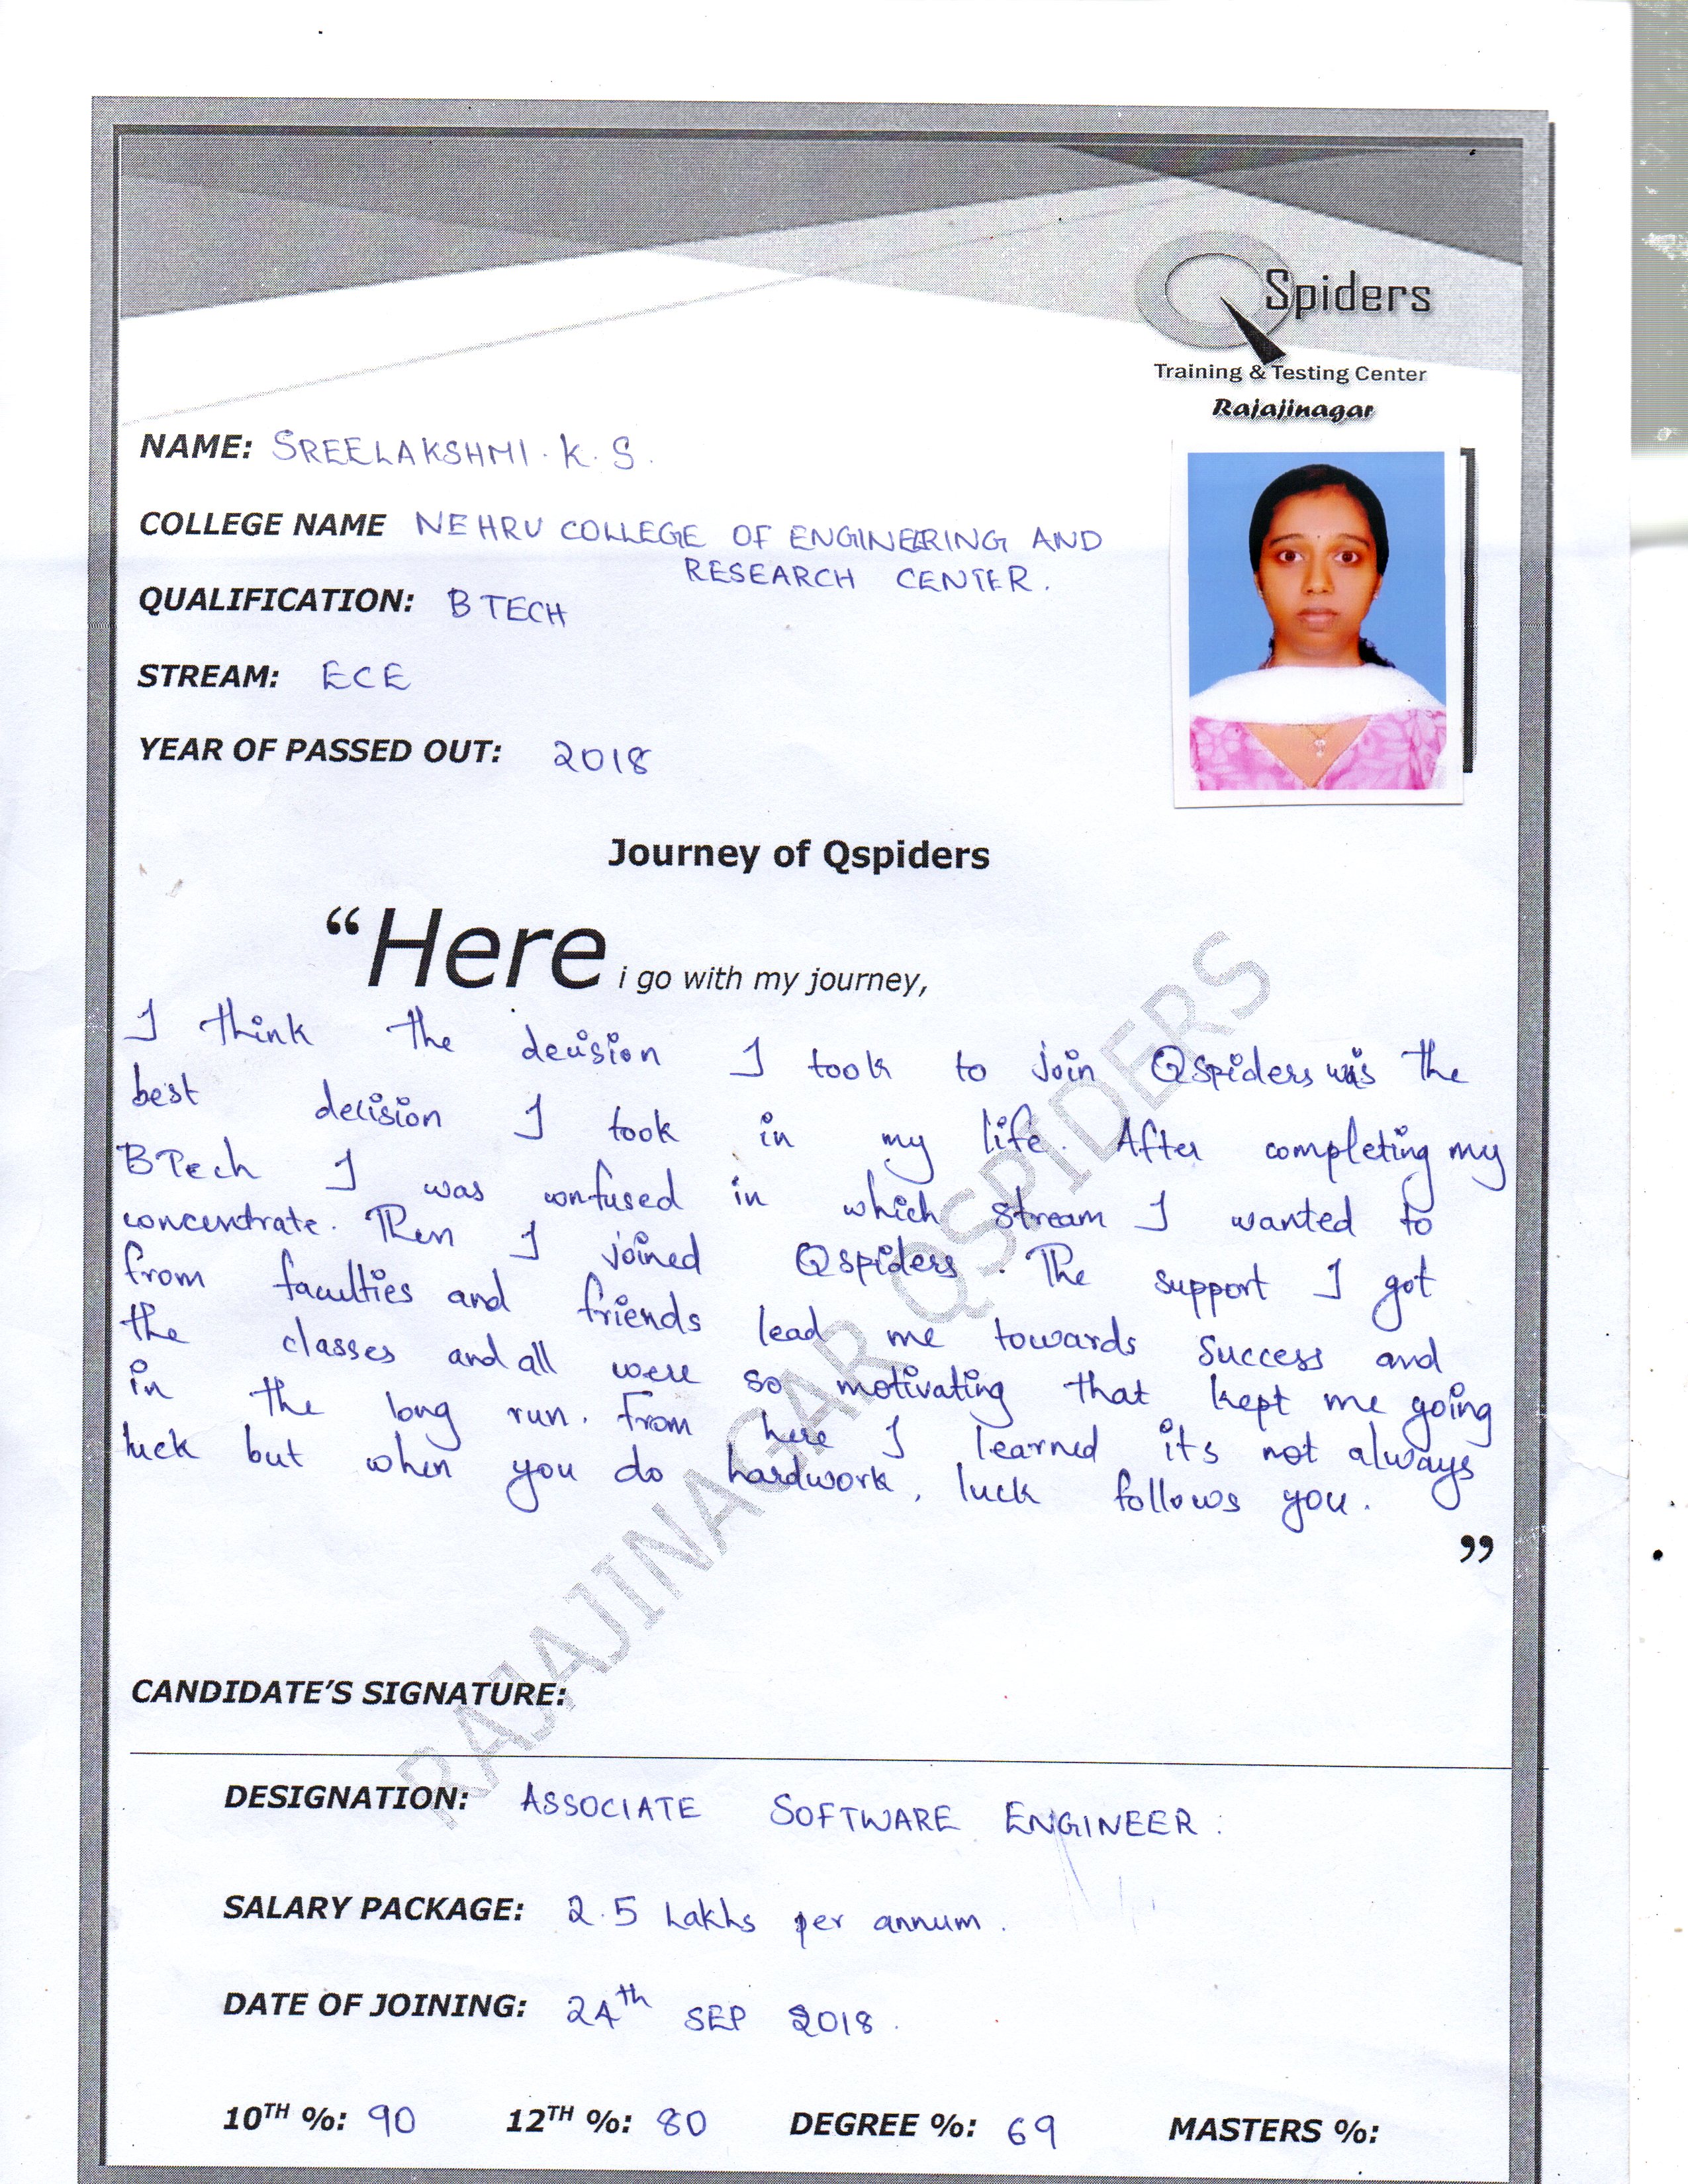 QSpiders
Training & Testing Center
Rajajinagar
NAME: SREELAKSHMI. K. S.
COLLEGE NAME NEHRU COLLEGE OF ENGINEERING AND
RESEARCH CENTER.
QUALIFICATION: B TECH
STREAM: ECE
YEAR OF PASSED OUT: 2018
Journey of Qspiders
“Here i go with my journey,
I think the decision I took to join Qspiders was the
best decision I took in my life. After completing my
BTech I was confused in which stream I wanted to
concentrate. Then I joined Qspiders. The support I got
from faculties and friends lead me towards success and
the classes and all were so motivating that kept me going
in the long run. From here I learned its not always
luck but when you do hardwork, luck follows you.
”
RAJAJINAGAR QSPIDERS
CANDIDATE’S SIGNATURE:
DESIGNATION: ASSOCIATE SOFTWARE ENGINEER.
SALARY PACKAGE: 2.5 Lakhs per annum.
DATE OF JOINING: 24th SEP 2018.
10TH %: 90 12TH %: 80 DEGREE %: 69 MASTERS %: